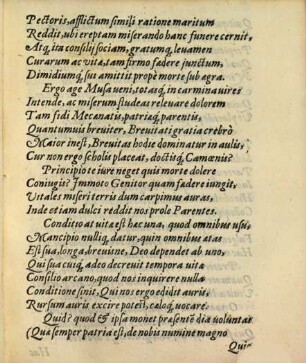 Pectoris, afflictum simili ratione maritum
Reddit, ubi ereptam miserando hanc funere cernit,
Atq́, ita consilij sociam, gratumq́, leuamen
Curarum ac vitæ, tam firmo fædere junctum,
Dimidiumq́, sui amittit propè morte sub ægra.
Ergo age Musa veni, totasq́, in carmina vires
Intende, ac miserum studeas releuare dolorem
Tam fidi Mecænatis, patriæq́, parentis,
Quantumuis breuiter, Breuitati gratia crebrò
Maior inest, Breuitas hodie dominatur in aulis,
Cur non ergo scholis placeat, doctisq́, Camœnis?
Principio te iure neget quis morte dolere
Coniugis? Immoto Genitor quam fædere iungit,
Vitales miseri terris dum carpimus auras,
Inde etiam dulci reddit nos prole Parentes.
Conditio at vitæ est hæc una, quod omnibus usu,
Mancipio nulliq́, datur, quin omnibus ætas
Est sua, longa, breuisue, Deo dependet ab uno,
Qui sua cuiq́, adeo decreuit tempora vitæ
Consilio arcano, quod nos inquirere nulla
Conditione sinit. Qui nos ergo edidit auris,
Rursum auris excire potest, cæloq́, vocare.
Quid? quod & ipsa monet præsentē dia voluntas
(Quæ semper patria est, de nobis numine magno
Qui-